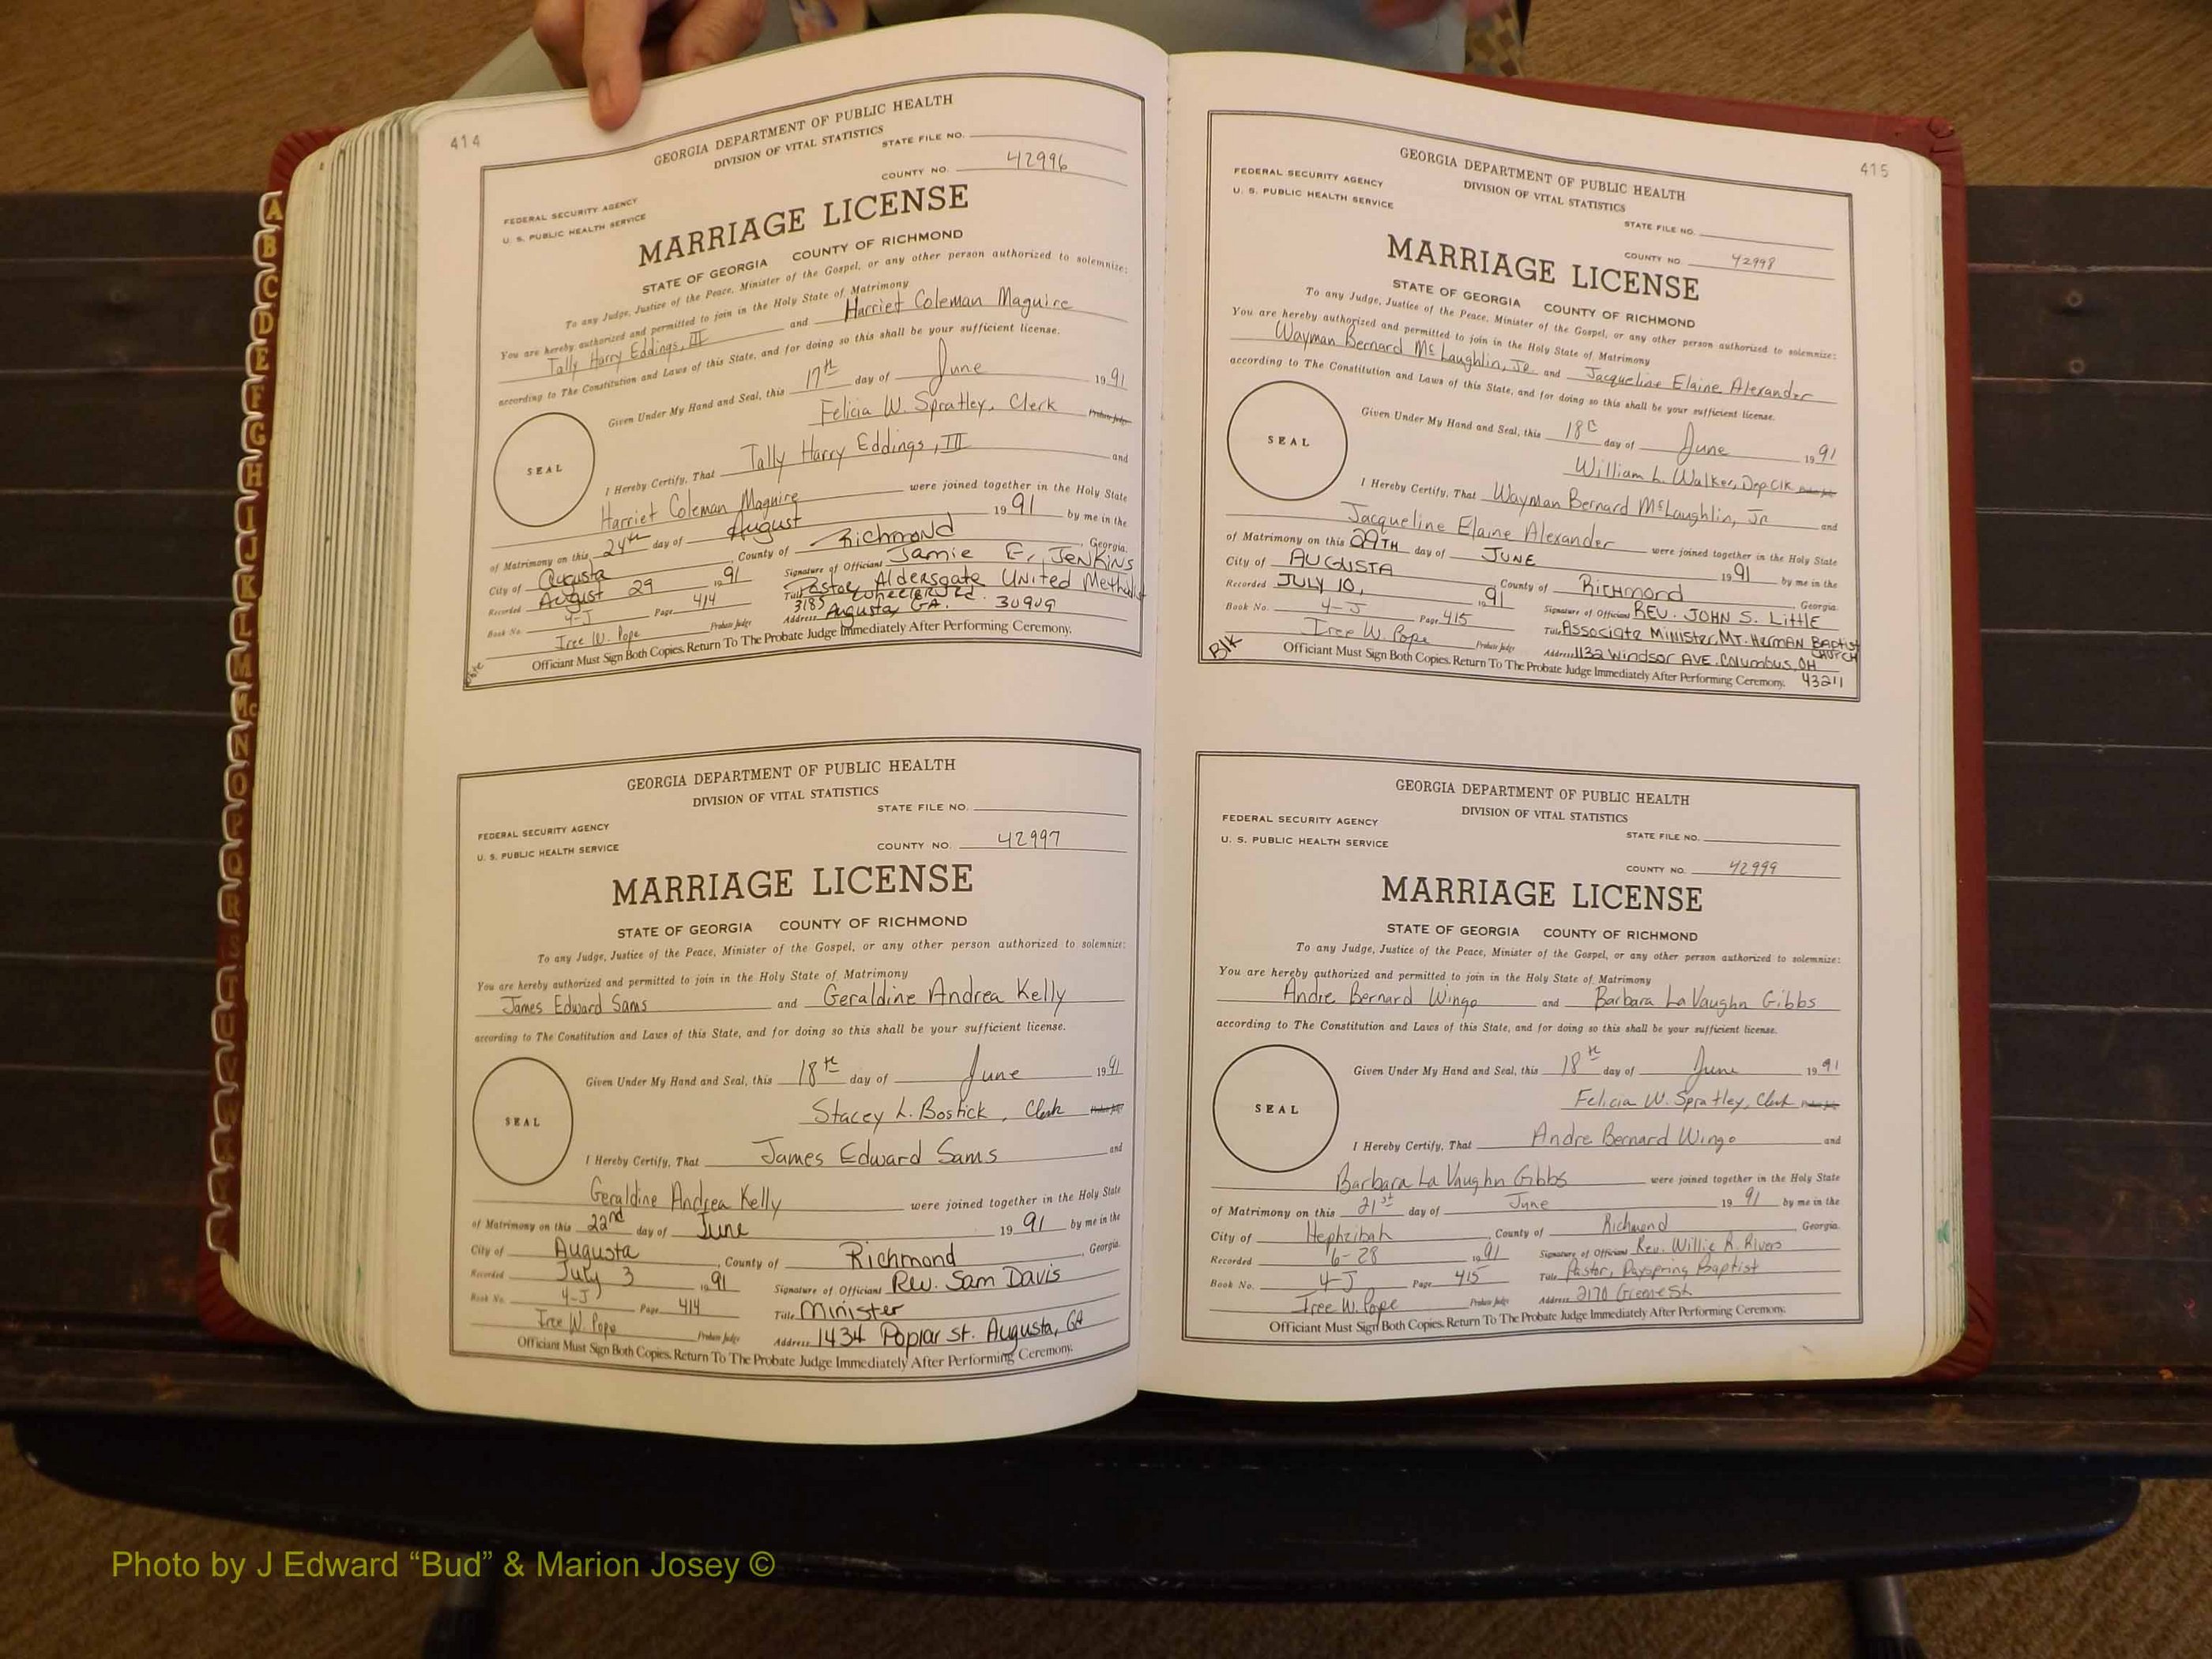 414
GEORGIA DEPARTMENT OF PUBLIC HEALTH
DIVISION OF VITAL STATISTICS
STATE FILE NO.
COUNTY NO. 42996
FEDERAL SECURITY AGENCY
U. S. PUBLIC HEALTH SERVICE
MARRIAGE LICENSE
STATE OF GEORGIA COUNTY OF RICHMOND
To any Judge, Justice of the Peace, Minister of the Gospel, or any other person authorized to solemnize:
You are hereby authorized and permitted to join in the Holy State of Matrimony
Tally Harry Eddings, III and Harriet Coleman Maguire
according to The Constitution and Laws of this State, and for doing so this shall be your sufficient license.
Given Under My Hand and Seal, this 17th day of June 1991
Felicia W. Spratley, Clerk Probate Judge
SEAL
I Hereby Certify, That Tally Harry Eddings, III and
Harriet Coleman Maguire were joined together in the Holy State
of Matrimony on this 24th day of August 1991 by me in the
City of Augusta, County of Richmond, Georgia.
Recorded August 29 1991 Signature of Official Jamie E. Jenkins
Book No. 4-J Page 414 Title Pastor, Aldersgate United Methodist
Iree W. Pope Probate Judge Address 3185 Wheeler Rd. Augusta, GA. 30909
Officiant Must Sign Both Copies. Return To The Probate Judge Immediately After Performing Ceremony.
GEORGIA DEPARTMENT OF PUBLIC HEALTH
DIVISION OF VITAL STATISTICS
STATE FILE NO.
FEDERAL SECURITY AGENCY
U. S. PUBLIC HEALTH SERVICE
COUNTY NO. 42997
MARRIAGE LICENSE
STATE OF GEORGIA COUNTY OF RICHMOND
To any Judge, Justice of the Peace, Minister of the Gospel, or any other person authorized to solemnize:
You are hereby authorized and permitted to join in the Holy State of Matrimony
James Edward Sams and Geraldine Andrea Kelly
according to The Constitution and Laws of this State, and for doing so this shall be your sufficient license.
Given Under My Hand and Seal, this 18th day of June 1991
Stacey L. Bostick, Clerk Probate Judge
SEAL
I Hereby Certify, That James Edward Sams and
Geraldine Andrea Kelly were joined together in the Holy State
of Matrimony on this 22nd day of June 1991 by me in the
City of Augusta, County of Richmond, Georgia.
Recorded July 3 1991 Signature of Official Rev. Sam Davis
Book No. 4-J Page 414 Title Minister
Iree W. Pope Probate Judge Address 1434 Poplar St. Augusta, GA
Officiant Must Sign Both Copies. Return To The Probate Judge Immediately After Performing Ceremony.
415
GEORGIA DEPARTMENT OF PUBLIC HEALTH
DIVISION OF VITAL STATISTICS
FEDERAL SECURITY AGENCY
U. S. PUBLIC HEALTH SERVICE
STATE FILE NO.
COUNTY NO. 42998
MARRIAGE LICENSE
STATE OF GEORGIA COUNTY OF RICHMOND
To any Judge, Justice of the Peace, Minister of the Gospel, or any other person authorized to solemnize:
You are hereby authorized and permitted to join in the Holy State of Matrimony
Wayman Bernard McLaughlin, Jr. and Jacqueline Elaine Alexander
according to The Constitution and Laws of this State, and for doing so this shall be your sufficient license.
Given Under My Hand and Seal, this 18th day of June 1991
William L. Walker, Dep Clk Probate Judge
SEAL
I Hereby Certify, That Wayman Bernard McLaughlin, Jr and
Jacqueline Elaine Alexander were joined together in the Holy State
of Matrimony on this 29TH day of JUNE 1991 by me in the
City of AUGUSTA, County of RICHMOND, Georgia.
Recorded JULY 10, 1991 Signature of Official REV. JOHN S. Little
Book No. 4-J Page 415 Title Associate Minister, MT. HERMAN BAPTIST CHURCH
Iree W. Pope Probate Judge Address 1132 Windsor AVE. Columbus, OH 43211
Blk
Officiant Must Sign Both Copies. Return To The Probate Judge Immediately After Performing Ceremony.
GEORGIA DEPARTMENT OF PUBLIC HEALTH
DIVISION OF VITAL STATISTICS
FEDERAL SECURITY AGENCY
U. S. PUBLIC HEALTH SERVICE
STATE FILE NO.
COUNTY NO. 42999
MARRIAGE LICENSE
STATE OF GEORGIA COUNTY OF RICHMOND
To any Judge, Justice of the Peace, Minister of the Gospel, or any other person authorized to solemnize:
You are hereby authorized and permitted to join in the Holy State of Matrimony
Andre Bernard Wingo and Barbara La Vaughn Gibbs
according to The Constitution and Laws of this State, and for doing so this shall be your sufficient license.
Given Under My Hand and Seal, this 18th day of June 1991
Felicia W. Spratley, Clerk Probate Judge
SEAL
I Hereby Certify, That Andre Bernard Wingo and
Barbara La Vaughn Gibbs were joined together in the Holy State
of Matrimony on this 21st day of June 1991 by me in the
City of Hephzibah, County of Richmond, Georgia.
Recorded 6-28 1991 Signature of Official Rev. Willie R. Rivers
Book No. 4-J Page 415 Title Pastor, Dayspring Baptist
Iree W. Pope Probate Judge Address 2170 Greene St.
Officiant Must Sign Both Copies. Return To The Probate Judge Immediately After Performing Ceremony.
A
B
C
D
E
F
G
H
I
J
K
L
M
Mc
N
O
P
Q
R
S
T
U
V
W
Photo by J Edward “Bud” & Marion Josey ©